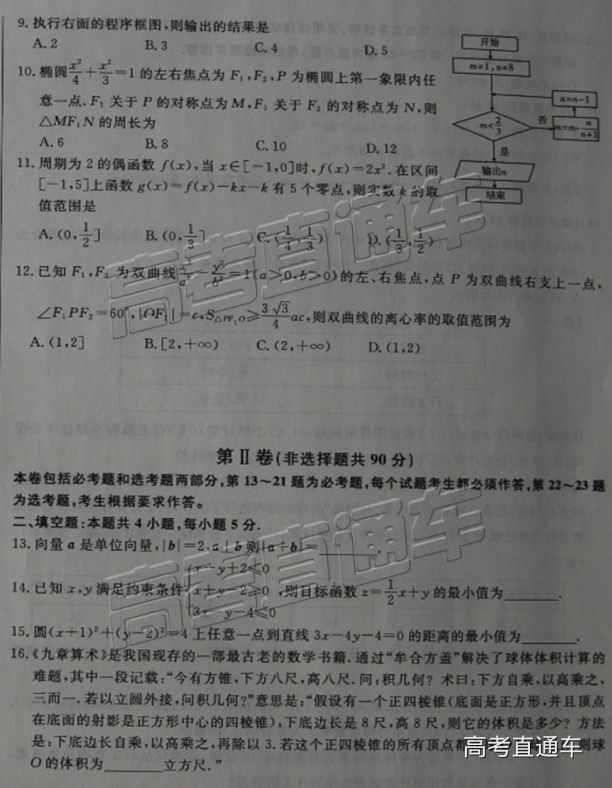 9. 执行右面的程序框图,则输出的结果是
A. 2 B. 3 C. 4 D. 5
开始
m=1, n=8
m<2/3
否
n=n-1
m=m·n/(n+1)
是
输出n
结束
10. 椭圆x²/4+y²/3=1的左右焦点为F₁,F₂,P为椭圆上第一象限内任
意一点,F₁关于P的对称点为M,F₁关于F₂的对称点为N,则
△MF₁N的周长为
A. 6 B. 8 C. 10 D. 12
11. 周期为2的偶函数f(x),当x∈[-1,0]时,f(x)=2x². 在区间
[-1,5]上函数g(x)=f(x)-kx-k有5个零点,则实数k的取
值范围是
A. (0,1/2] B. (0,1/3] C. (1/4,1/3) D. (1/3,1/2)
12. 已知F₁,F₂为双曲线x²/a²-y²/b²=1(a>0,b>0)的左、右焦点,点P为双曲线右支上一点,
∠F₁PF₂=60°,|OF₁|=c,S△PF₁O≥3√3/4 ac,则双曲线的离心率的取值范围为
A. (1,2] B. [2,+∞) C. (2,+∞) D. (1,2)
第Ⅱ卷(非选择题共90分)
本卷包括必考题和选考题两部分,第13~21题为必考题,每个试题考生都必须作答,第22~23题
为选考题,考生根据要求作答。
二、填空题:本题共4小题,每小题5分.
13. 向量a是单位向量,|b|=2,a⊥b则|a+b|=
14. 已知x,y满足约束条件{x-y+2≤0 x+y-2≥0 3x-y-4≤0,则目标函数z=1/2x+y的最小值为
15. 圆(x+1)²+(y-2)²=4上任意一点到直线3x-4y-4=0的距离的最小值为
16.《九章算术》是我国现存的一部最古老的数学书籍. 通过“牟合方盖”解决了球体体积计算的
难题,其中一段记载:“今有方锥,下方八尺,高八尺. 问:积几何? 术曰:下方自乘,以高乘之,
三而一. 若以立圆外接,问积几何?”意思是:“假设有一个正四棱锥(底面是正方形,并且顶点
在底面的射影是正方形中心的四棱锥),下底边长是8尺,高8尺,则它的体积是多少? 方法
是:下底边长自乘,以高乘之,再除以3. 若这个正四棱锥的所有顶点都 则球
O的体积为 立方尺.”
高考直通车
高考直通车
高考直通车